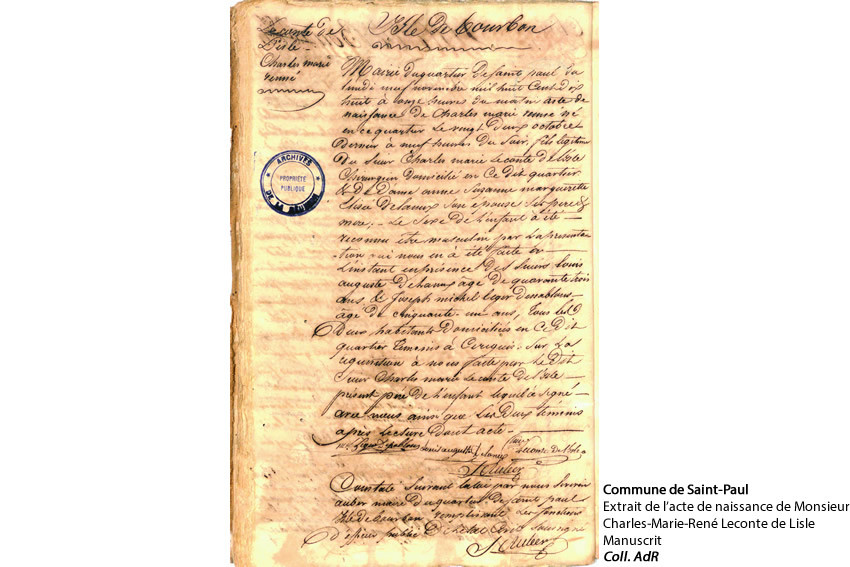 Leconte de
L'isle
Charles marie
renné
Isle de Bourbon
Mairie du quartier de Saint paul du
lundi neuf novembre mil huit Cent dix
huit à onze heures du matin acte de
naissance de Charles marie renné né
en ce quartier le vingt deux octobre
dernier à neuf heures du soir, fils légitime
du Sieur Charles marie Leconte de L'isle
Chirurgien Domicilié en Ce dit quartier
& de Dame anne Suzanne margueritte
Elisa de Lanux Son épouse Ses pere &
mere. Le Sexe de L'enfant à été
reconnu être masculin par la présenta
tion qui nous en à été faite à
L'instant en présence des Sieurs Louis
auguste de Lanux âgé de quarante trois
ans, & Joseph michel Leger Desablons
âgé de cinquante un ans, tous les
Deux habitants Domiciliés en Ce Dit
quartier Temoins à Ce requis. Sur La
requisition à nous faite par le Dit
Sieur Charles marie Leconte de L'isle
présent pere de L'enfant lequel à Signé
avec nous ainsi que Les Deux temoins
après Lecture
Leconte de L'isle
Constaté Suivant la loi par nous
auber maire du quartier de Saint paul
Isle de bourbon remplissant Les fonctions
d'officier public De L'état Civil Soussigné
ARCHIVES
PROPRIÉTÉ
PUBLIQUE
DE LA RÉUNION
Commune de Saint-Paul
Extrait de l'acte de naissance de Monsieur
Charles-Marie-René Leconte de Lisle
Manuscrit
Coll. AdR